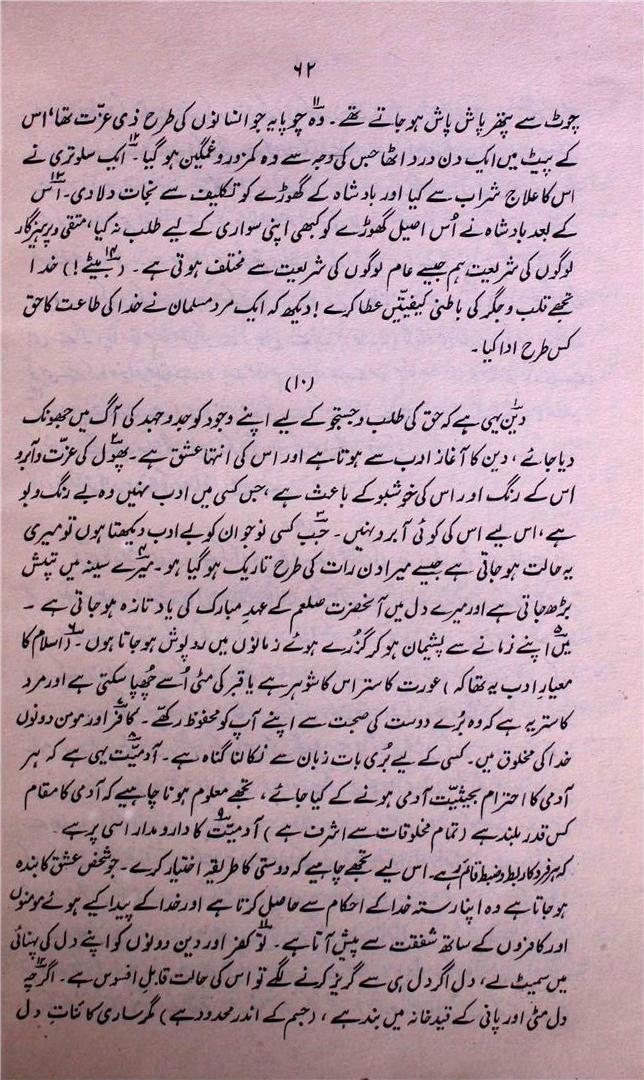 ۶۲
چوٹ سے پتھر پاش پاش ہو جاتے تھے۔ ۱۱وہ چوپایہ جو انسانوں کی طرح ذی عزّت تھا، اس
کے پیٹ میں ایک دن درد اٹھا حبس کی وجہ سے وہ کمزور و غمگین ہو گیا۔ ۱۲ایک سلوتری نے
اس کا علاج شراب سے کیا اور بادشاہ کے گھوڑے کو تکلیف سے نجات دلا دی۔ ۱۳اس
کے بعد بادشاہ نے اُس اصیل گھوڑے کو کبھی اپنی سواری کے لیے طلب نہ کیا، متقی و پرہیزگار
لوگوں کی شریعت ہم جیسے عام لوگوں کی شریعت سے مختلف ہوتی ہے۔ ۱۴(بیٹے!) خدا
تجھے قلب و جگر کی باطنی کیفیتیں عطا کرے! دیکھ کہ ایک مرد مسلمان نے خدا کی طاعت کا حق
کس طرح ادا کیا۔
(۱۰)
۱دین یہی ہے کہ حق کی طلب و جستجو کے لیے اپنے وجود کو جدوجہد کی آگ میں جھونک
دیا جائے، دین کا آغاز ادب سے ہوتا ہے اور اس کی انتہا عشق ہے۔ ۲پھول کی عزّت و آبرو
اس کے رنگ اور اس کی خوشبو کے باعث ہے، جس کسی میں ادب نہیں وہ بے رنگ و بو
ہے، اس لیے اس کی کوئی آبرو نہیں۔ ۳جب کسی نوجوان کو بے ادب دیکھتا ہوں تو میری
یہ حالت ہو جاتی ہے جیسے میرا دن رات کی طرح تاریک ہو گیا ہو۔ ۴میرے سینہ میں تپش
بڑھ جاتی ہے اور میرے دل میں آنحضرت صلعم کے عہدِ مبارک کی یاد تازہ ہو جاتی ہے ۔
۵میں اپنے زمانے سے پشیمان ہو کر گزرے ہوئے زمانوں میں روپوش ہو جاتا ہوں۔ ۶(اسلام کا
معیارِ ادب یہ تھا کہ) عورت کا ستر اس کا شوہر ہے یا قبر کی مٹی اُسے چھپا سکتی ہے اور مرد
کا ستر یہ ہے کہ وہ بُرے دوست کی صحبت سے اپنے آپ کو محفوظ رکھے۔ ۷کافر اور مومن دونوں
خدا کی مخلوق میں۔ کسی کے لیے بُری بات زبان سے نکالنا گناہ ہے۔ ۸آدمیّت یہی ہے کہ ہر
آدمی کا احترام بحیثیّت آدمی ہونے کے کیا جائے، تجھے معلوم ہونا چاہیے کہ آدمی کا مقام
کس قدر بلند ہے (تمام مخلوقات سے اشرف ہے) ۹آدمیّت کا دارومدار اسی پر ہے ۔
کہ ہر فرد کا ربط و ضبط قائم رہے۔ اس لیے تجھے چاہیے کہ دوستی کا طریقہ اختیار کرے۔ جو شخص عشق کا بندہ
ہو جاتا ہے وہ اپنا رستہ خدا کے احکام سے حاصل کرتا ہے اور خدا کے پیدا کیے ہوئے مومنوں
اور کافروں کے ساتھ شفقت سے پیش آتا ہے۔ ۱۱تو کفر اور دین دونوں کو اپنے دل کی پہنائی
میں سمیٹ لے، دل اگر دل ہی سے گریز کرنے لگے تو اس کی حالت قابلِ افسوس ہے۔ ۱۲اگرچہ
دل مٹی اور پانی کے قید خانہ میں بند ہے، (جسم کے اندر محدود ہے) مگر ساری کائناتِ دل